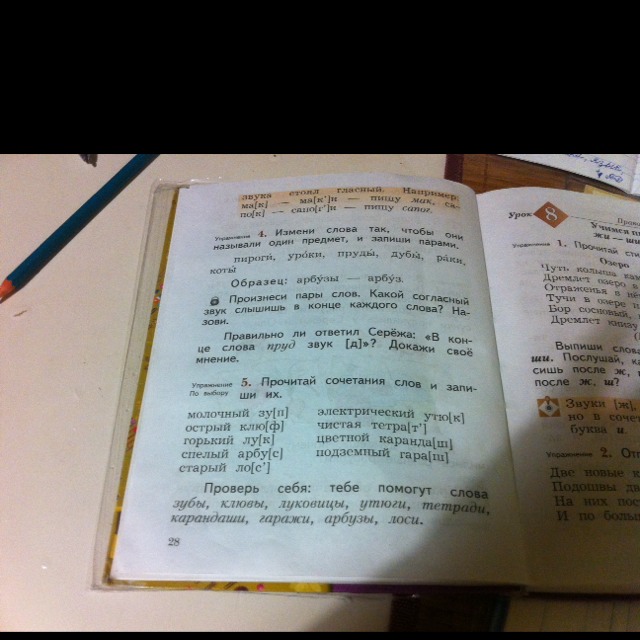 звука стоял гласный. Например
ма[к] — ма[к']и — пишу мак, са-
по[к] — сапо[г']и — пишу сапог.
Упражнение 4. Измени слова так, чтобы они
называли один предмет, и запиши парами.
пироги́, уро́ки, пруды́, дубы́, ра́ки,
коты́
Образец: арбу́зы — арбу́з.
Произнеси пары слов. Какой согласный
звук слышишь в конце каждого слова? На-
зови.
Правильно ли ответил Серёжа: «В кон-
це слова пруд звук [д]»? Докажи своё
мнение.
Упражнение По выбору 5. Прочитай сочетания слов и запи-
ши их.
молочный зу[п] электрический утю[к]
острый клю[ф] чистая тетра[т']
горький лу[к] цветной каранда[ш]
спелый арбу[с] подземный гара[ш]
старый ло[с']
Проверь себя: тебе помогут слова
зубы, клювы, луковицы, утюги, тетради,
карандаши, гаражи, арбузы, лоси.
28
Урок 8
Учимся
жи — ши
Упражнение 1. Прочитай
Озеро
Чуть колыша
Дремлет озеро в
Отраженья в
Тучи в озере
Бор сосновый,
Дремлет
Выпиши
ши. Послушай,
сишь после ж,
после ж, ш?
Звуки [ж],
но в
буква и.
Упражнение 2.
Две новые
Подошвы
На них
И по